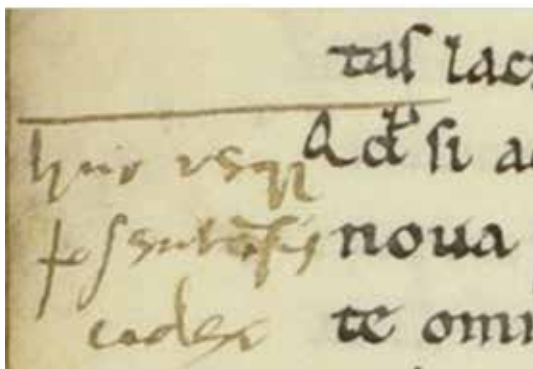 taſ lac
huc vsqꝫ
Qđ ſi a
noua
codex
te om